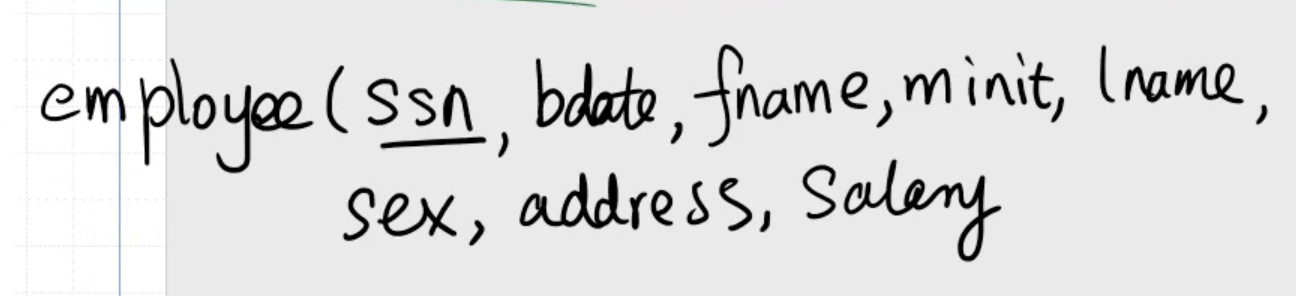 employee(ssn, bdate, fname, minit, lname,
sex, address, salary